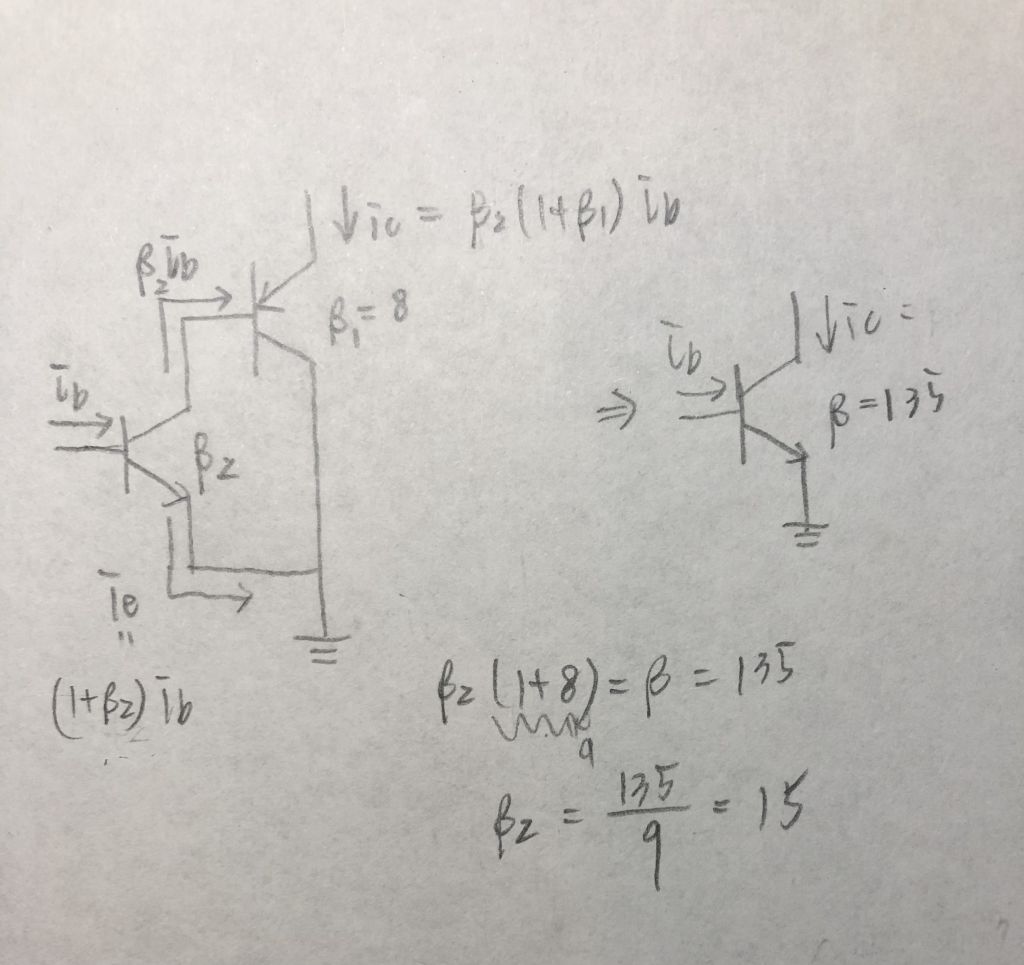 ↓ic = β₂(1+β₁) ib
β₂ib
β₁ = 8
ib
β₂
ie
"
(1+β₂) ib
⇒
ib
↓ic =
β = 135
β₂ (1+8) = β = 135
9
β₂ = 135/9 = 15